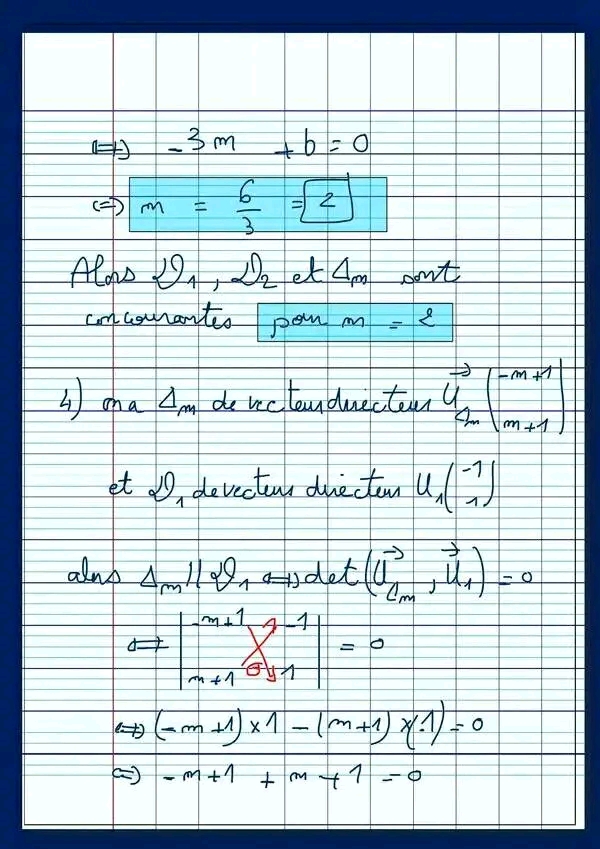 ⟺ -3m + b = 0
⟺ m = 6/3 = 2
Alors D₁, D₂ et Δm sont
concourantes pour m = 2
4) on a Δm de vecteur directeur U⃗_Δm (-m+1 / m+1)
et D₁ de vecteur directeur U₁ (-1 / 1)
alors Δm // D₁ ⟺ det(U⃗_Δm, U⃗₁) = 0
⟺ | -m+1  -1 / m+1  1 | = 0
⟺ (-m+1)×1 - (m+1)×(-1) = 0
⟺ -m+1 + m+1 = 0